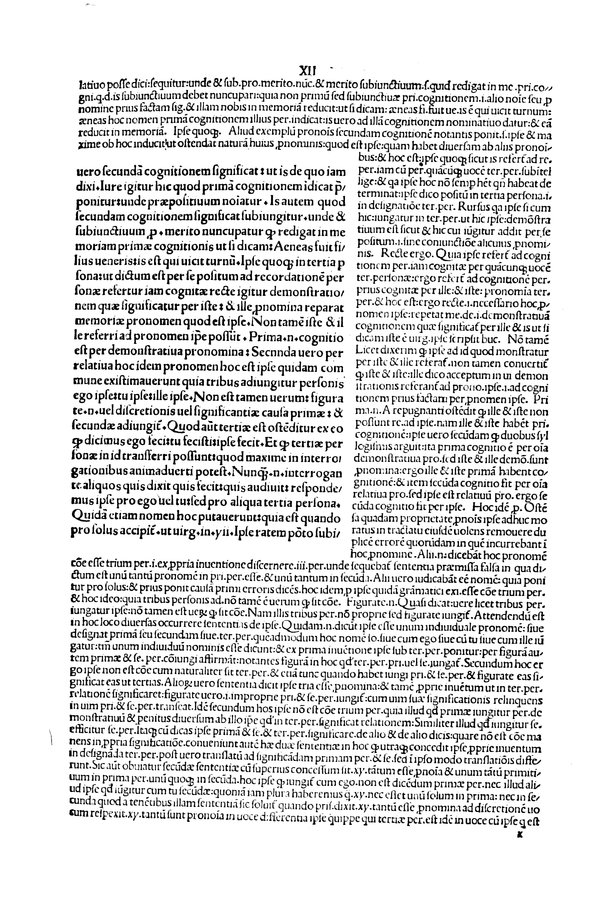 XII
latiuo posse dici: sequitur: unde & sub. pro. merito. nūc. & merito subiunctiuum. s. quid redigat in me. pri. co//
gni. q. d. is subiunctiuum debet nuncupari: quia non primū sed subiunctiuā pri. cognitionem. i. alio noīe seu p
nomine prius factam sig. & illam nobis in memoriā reducit: ut si dicam: æneas fi. fuit ue. is ē qui uicit turnum:
æneas hoc nomen primā cognitionem illius per. indicat: is uero ad illā cognitionem nominatiuo datur: & eā
reducit in memoriā. Ipse quoq. Aliud exemplū pronoīs secundam cognitionē notantis ponit. s. ipse & ma
xime ob hoc inducit ut ostendat naturā huius pronominis: quod est ipse: quam habet diuersam ab aliis prono/
uero secundā cognitionem significat: ut is de quo iam
dixi. Iure igitur hic quod primā cognitionem idicat p/
ponitur: unde præpositiuum noīatur. Is autem quod
secundam cognitionem significat subiungitur. unde &
subiunctiuum, p. merito nuncupatur q redigit in me
moriam primæ cognitionis ut si dicam: Aeneas fuit fi/
lius ueneris is est qui uicit turnū. Ipse quoq in tertia p
sona: ut dictum est per se positum ad recordationē per
sonæ refertur iam cognitæ recte igitur demonstratio/
nem quæ significatur per iste: & ille, pnomina reparat
memoriæ pronomen quod est ipse. Non tamē iste & il
le referri ad pronomen ipse possūt. Prima. n. cognitio
est per demonstratiua pronomina: Secunda uero per
relatiua hoc idem pronomen hoc est ipse quidam com
mune existimauerunt quia tribus adiungitur personis
ego ipse: tu ipse: ille ipse. Non est tamen uerum: figura
te. n. uel discretionis uel significantiæ causa primæ: &
secundæ adiungit. Quod aūt tertiæ est ostēditur ex eo
q dicimus ego feci: tu fecisti: ipse fecit. Et q tertiæ per
sonæ in id transferri possunt: quod maxime in interro/
gationibus animaduerti potest. Nunq. n. interrogan
te. aliquos quis dixit quis fecit: quis audiuit: responde/
mus ipse pro ego uel tu: sed pro aliqua tertia persona.
Quidā etiam nomen hoc putauerunt: quia est quando
pro solus accipit. ut uirg. in. yii. Ipse ratem pōto subi/
bus: & hoc est: ipse quoq sicut is refert ad re.
per. iam cū per. quācūq uocē ter. per. subitel
lige: & qa ipse hoc nō semp hēt qn habeat de
terminat: ipse dico positū in tertia persona. i.
in designatiōe ter. per. Rursus qa ipse si cum
hic: iungatur in ter. per. ut hic ipse: demōstra
tiuum est sicut & hic cui iūgitur addit per. se
positum. i. sine coniunctiōe alicuius, pnomi/
nis. Recte ergo. Quia ipse refert ad cogni
tionem per. iam cognitæ per quācunq uocē
ter. personæ: ergo refert ad cognitionē per.
prius cognitæ per ille: & iste: pronoīa ter.
per. & hoc est: ergo recte. i. necessario hoc, p/
nomen ipse: repetat me. de. i. demonstratiuā
cognitionem quæ significat per ille & is ut si
dicam iste ē uirg. ipse scripsit buc. Nō tamē
Licet dixerim q ipse ad id quod monstratur
per iste & ille referat. non tamen conuertit
q iste & ille: dico acceptum in ui demon
strationis referant ad prono. ipse. i. ad cogni
tionem prius factam per, pnomen ipse. Pri
ma. n. A repugnanti ostēdit q ille & iste non
possunt re. ad ipse. nam ille & iste habēt pri.
cognitionē: ipse uero secūdam q duobus syl
logismis arguit: ita prima cognitio ē per oīa
demonstratiua pro. sed iste & ille demō. sunt
pnomina: ergo ille & iste primā habent co/
gnitionē: & item secūda cognitio fit per oīa
relatiua pro. sed ipse est relatiuū pro. ergo se
cūda cognitio fit per ipse. Hoc idē p. Ostē
sa quadam proprietate, pnoīs ipse adhuc mo
ratus in tractatu eiusdē uolens remouere du
plicē errorē quorūdam in quē incurrebant i
hoc, pnomine. Alii. n. dicebāt hoc pronomē
cōe esse trium per. i. ex, ppria inuentione discernere. iii. per. unde sequebat sentētia præmissa falsa in qua di/
ctum est unū tantū pronomē in pri. per. esse. & unū tantum in secūda. Alii uero iudicabāt eē nomē: quia poni
tur pro solus: & prius ponit causā primi erroris dicēs. hoc idem, p ipse quidā gramatici exi. esse cōe trium per.
& hoc ideo: quia tribus personis ad. nō tamē ē uerum q sit cōe. Figurate. n. Quasi dicat: uere licet tribus per.
iungatur ipse: nō tamen est uerū q sit cōe. Nam illis tribus per. nō proprie sed figurate iungit. Attendendū est
in hoc loco diuersas occurrere sententias de ipse. Quidam. n. dicūt ipse esse unum indiuiduale pronomē: siue
designat primā seu secundam siue. ter. per. quēadmodum hoc nomē io. siue cum ego siue cū tu siue cum ille iū
gatur: unum unum indiuiduū nomen est: & ex prima inuentione ipse sub ter. per. ponitur: per figurā au/
tem primæ & se. per. cōiungi affirmāt: notantes figurā in hoc qd ter. per. pri. uel se. iungat. Secundum hoc er
go ipse non est cōe cum naturaliter sit ter. per. & etiā tunc quando habet iungi pri. & se. per. & figurate eas si/
gnificat eas ut tertias. Alio: uero sententia dicit ipse tria esse, pnomina: & tamē, pprie inuētum ut in ter. per.
relationē significaret: figurate uero. i. improprie pri. & se. per. iungit: cum uim suæ significationis relinquens
in uim pri. & se. per. transeat. Idē secundum hos ipse nō est cōe trium per. quia illud qd primæ iungitur per. de
monstratiuū & penitus diuersum ab illo ipe qd in ter. per. significat relationem: Similiter illud qd iungitur se.
efficitur se. per. Itaq cū dicas ipse primā & se. & ter. per. significare. de alio & de alio dicis: quare nō est cōe ma
nens in, ppria significatiōe. conueniunt autē hæ duæ sententiæ in hoc q utraq concedit ipse, pprie inuentum
in designāda ter. per. post uero translatū ad significādam primam per. & se. sed i ipso modo translatiōis diffe/
runt. Sic aūt obuiatur secūdæ sententiæ cū superius concessum sit. xv. tātum esse, pnoīa & unum tātū primiti/
uum in prima per. unū quoq in secūda. hoc ipse q iungit cum ego. non est dicēdum primæ per. nec illud ali/
ud ipse qd iūgitur cum tu secūdæ: quoniā iam plura haberemus q. xv. nec esset unū solum in prima: nec in se/
cunda quod a tenētibus illam sententiā sic soluit quando pris. dixit. xv. tantū esse, pnomina ad discretionē uo
cum respexit. xv. tantū sunt pronoīa in uoce differentia ipse quippe qui tertiæ per. est idē in uoce cū ipse q est
K